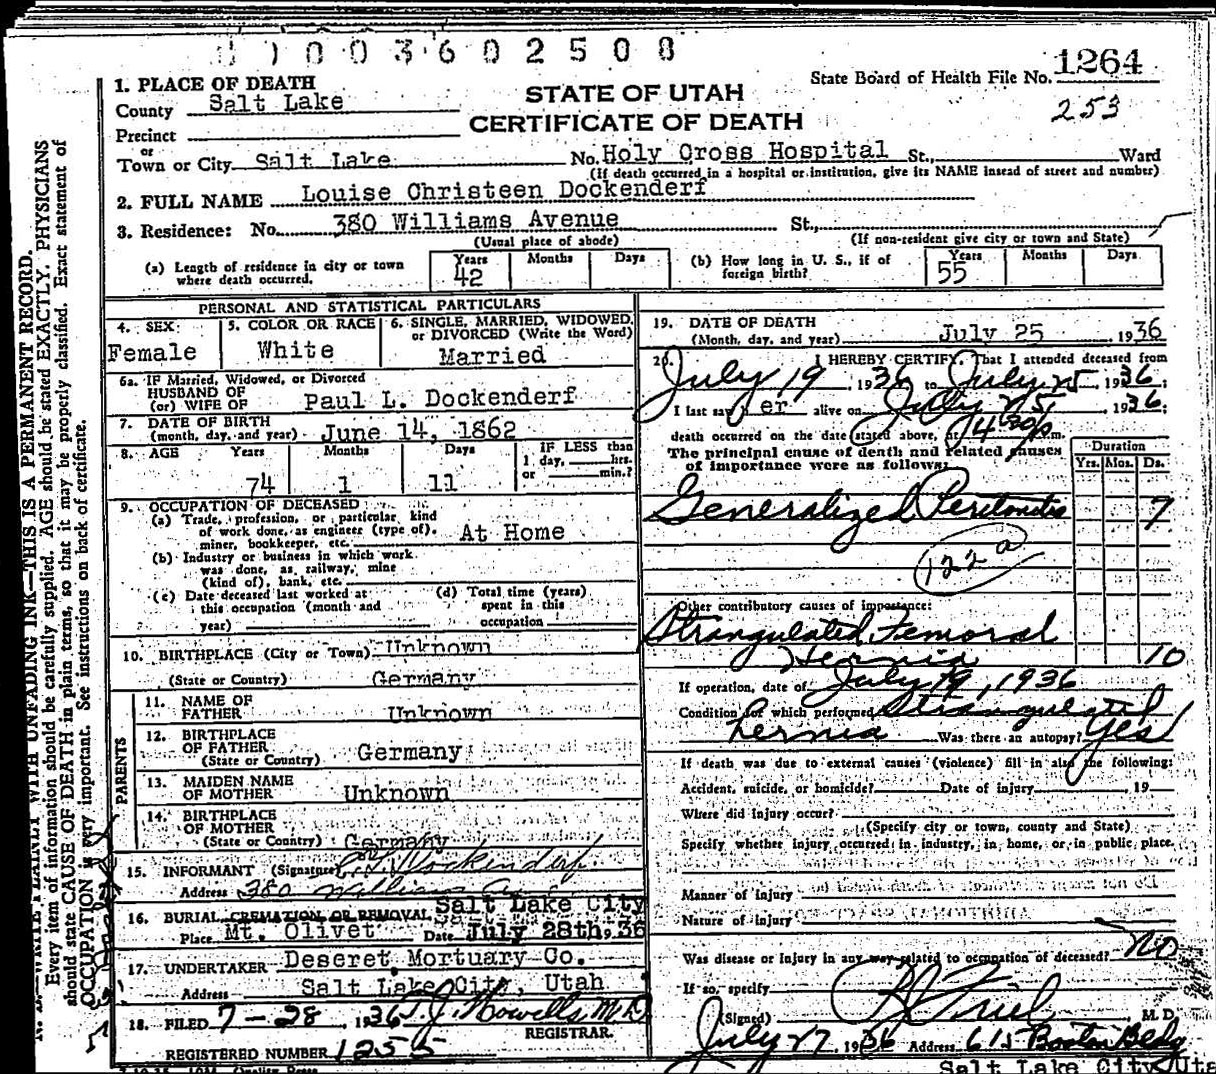 0 1 0 0 3 6 0 2 5 0 8
State Board of Health File No. 1264
253
STATE OF UTAH
CERTIFICATE OF DEATH
1. PLACE OF DEATH
County Salt Lake
Precinct
or
Town or City Salt Lake No. Holy Cross Hospital St., Ward
(If death occurred in a hospital or institution, give its NAME insead of street and number)
2. FULL NAME Louise Christeen Dockenderf
3. Residence: No. 380 Williams Avenue St.,
(Usual place of abode) (If non-resident give city or town and State)
(a) Length of residence in city or town where death occurred. Years 42 Months Days
(b) How long in U. S., if of foreign birth? Years 55 Months Days
PERSONAL AND STATISTICAL PARTICULARS
4. SEX Female
5. COLOR OR RACE White
6. SINGLE, MARRIED, WIDOWED, or DIVORCED (Write the Word) Married
6a. IF Married, Widowed, or Divorced
HUSBAND OF
(or) WIFE OF Paul L. Dockenderf
7. DATE OF BIRTH
(month, day, and year) June 14, 1862
8. AGE Years 74 Months 1 Days 11 IF LESS than 1 day, hrs. or min.?
9. OCCUPATION OF DECEASED
(a) Trade, profession, or particular kind of work done, as engineer (type of), miner, bookkeeper, etc. At Home
(b) Industry or business in which work was done, as railway, mine (kind of), bank, etc.
(c) Date deceased last worked at this occupation (month and year)
(d) Total time (years) spent in this occupation
10. BIRTHPLACE (City or Town) Unknown
(State or Country) Germany
PARENTS
11. NAME OF FATHER Unknown
12. BIRTHPLACE OF FATHER (State or Country) Germany
13. MAIDEN NAME OF MOTHER Unknown
14. BIRTHPLACE OF MOTHER (State or Country) Germany
15. INFORMANT (Signature) P. L. Dockenderf
Address 380 Williams Av
16. BURIAL, CREMATION OR REMOVAL Salt Lake City
Place Mt. Olivet Date July 28th, 36
17. UNDERTAKER Deseret Mortuary Co.
Address Salt Lake City, Utah
18. FILED 7-28, 1936 T. J. Howells M.D.
REGISTRAR.
REGISTERED NUMBER 1255
19. DATE OF DEATH
(Month, day, and year) July 25, 1936
20. I HEREBY CERTIFY, That I attended deceased from
July 19, 1936 to July 25, 1936;
I last saw h er alive on July 25, 1936;
death occurred on the date stated above, at m.
The principal cause of death and related causes of importance were as follows:
Duration
Yrs. Mos. Ds.
Generalized Peritonitis 7
122a
Other contributory causes of importance:
Strangulated Femoral
Hernia 10
If operation, date of July 19, 1936
Condition for which performed Strangulated
hernia Was there an autopsy? Yes
If death was due to external causes (violence) fill in also the following:
Accident, suicide, or homicide? Date of injury , 19
Where did injury occur?
(Specify city or town, county and State)
Specify whether injury occurred in industry, in home, or in public place.
Manner of injury
Nature of injury
Was disease or injury in any way related to occupation of deceased? No
If so, specify
(Signed) , M. D.
July 27, 1936 Address 615 Boston Bldg
Salt Lake City, Uta
N. B.—WRITE PLAINLY WITH UNFADING INK—THIS IS A PERMANENT RECORD.
Every item of information should be carefully supplied. AGE should be stated EXACTLY. PHYSICIANS
should state CAUSE OF DEATH in plain terms, so that it may be properly classified. Exact statement of
OCCUPATION is very important. See instructions on back of certificate.